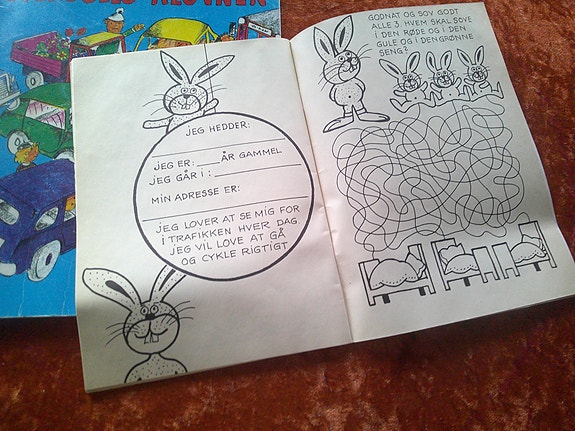 JEG HEDDER:
JEG ER: ÅR GAMMEL
JEG GÅR I:
MIN ADRESSE ER:
JEG LOVER AT SE MIG FOR
I TRAFIKKEN HVER DAG
JEG VIL LOVE AT GÅ
OG CYKLE RIGTIGT
GODNAT OG SOV GODT
ALLE 3. HVEM SKAL SOVE
I DEN RØDE OG I DEN
GULE OG I DEN GRØNNE
SENG?